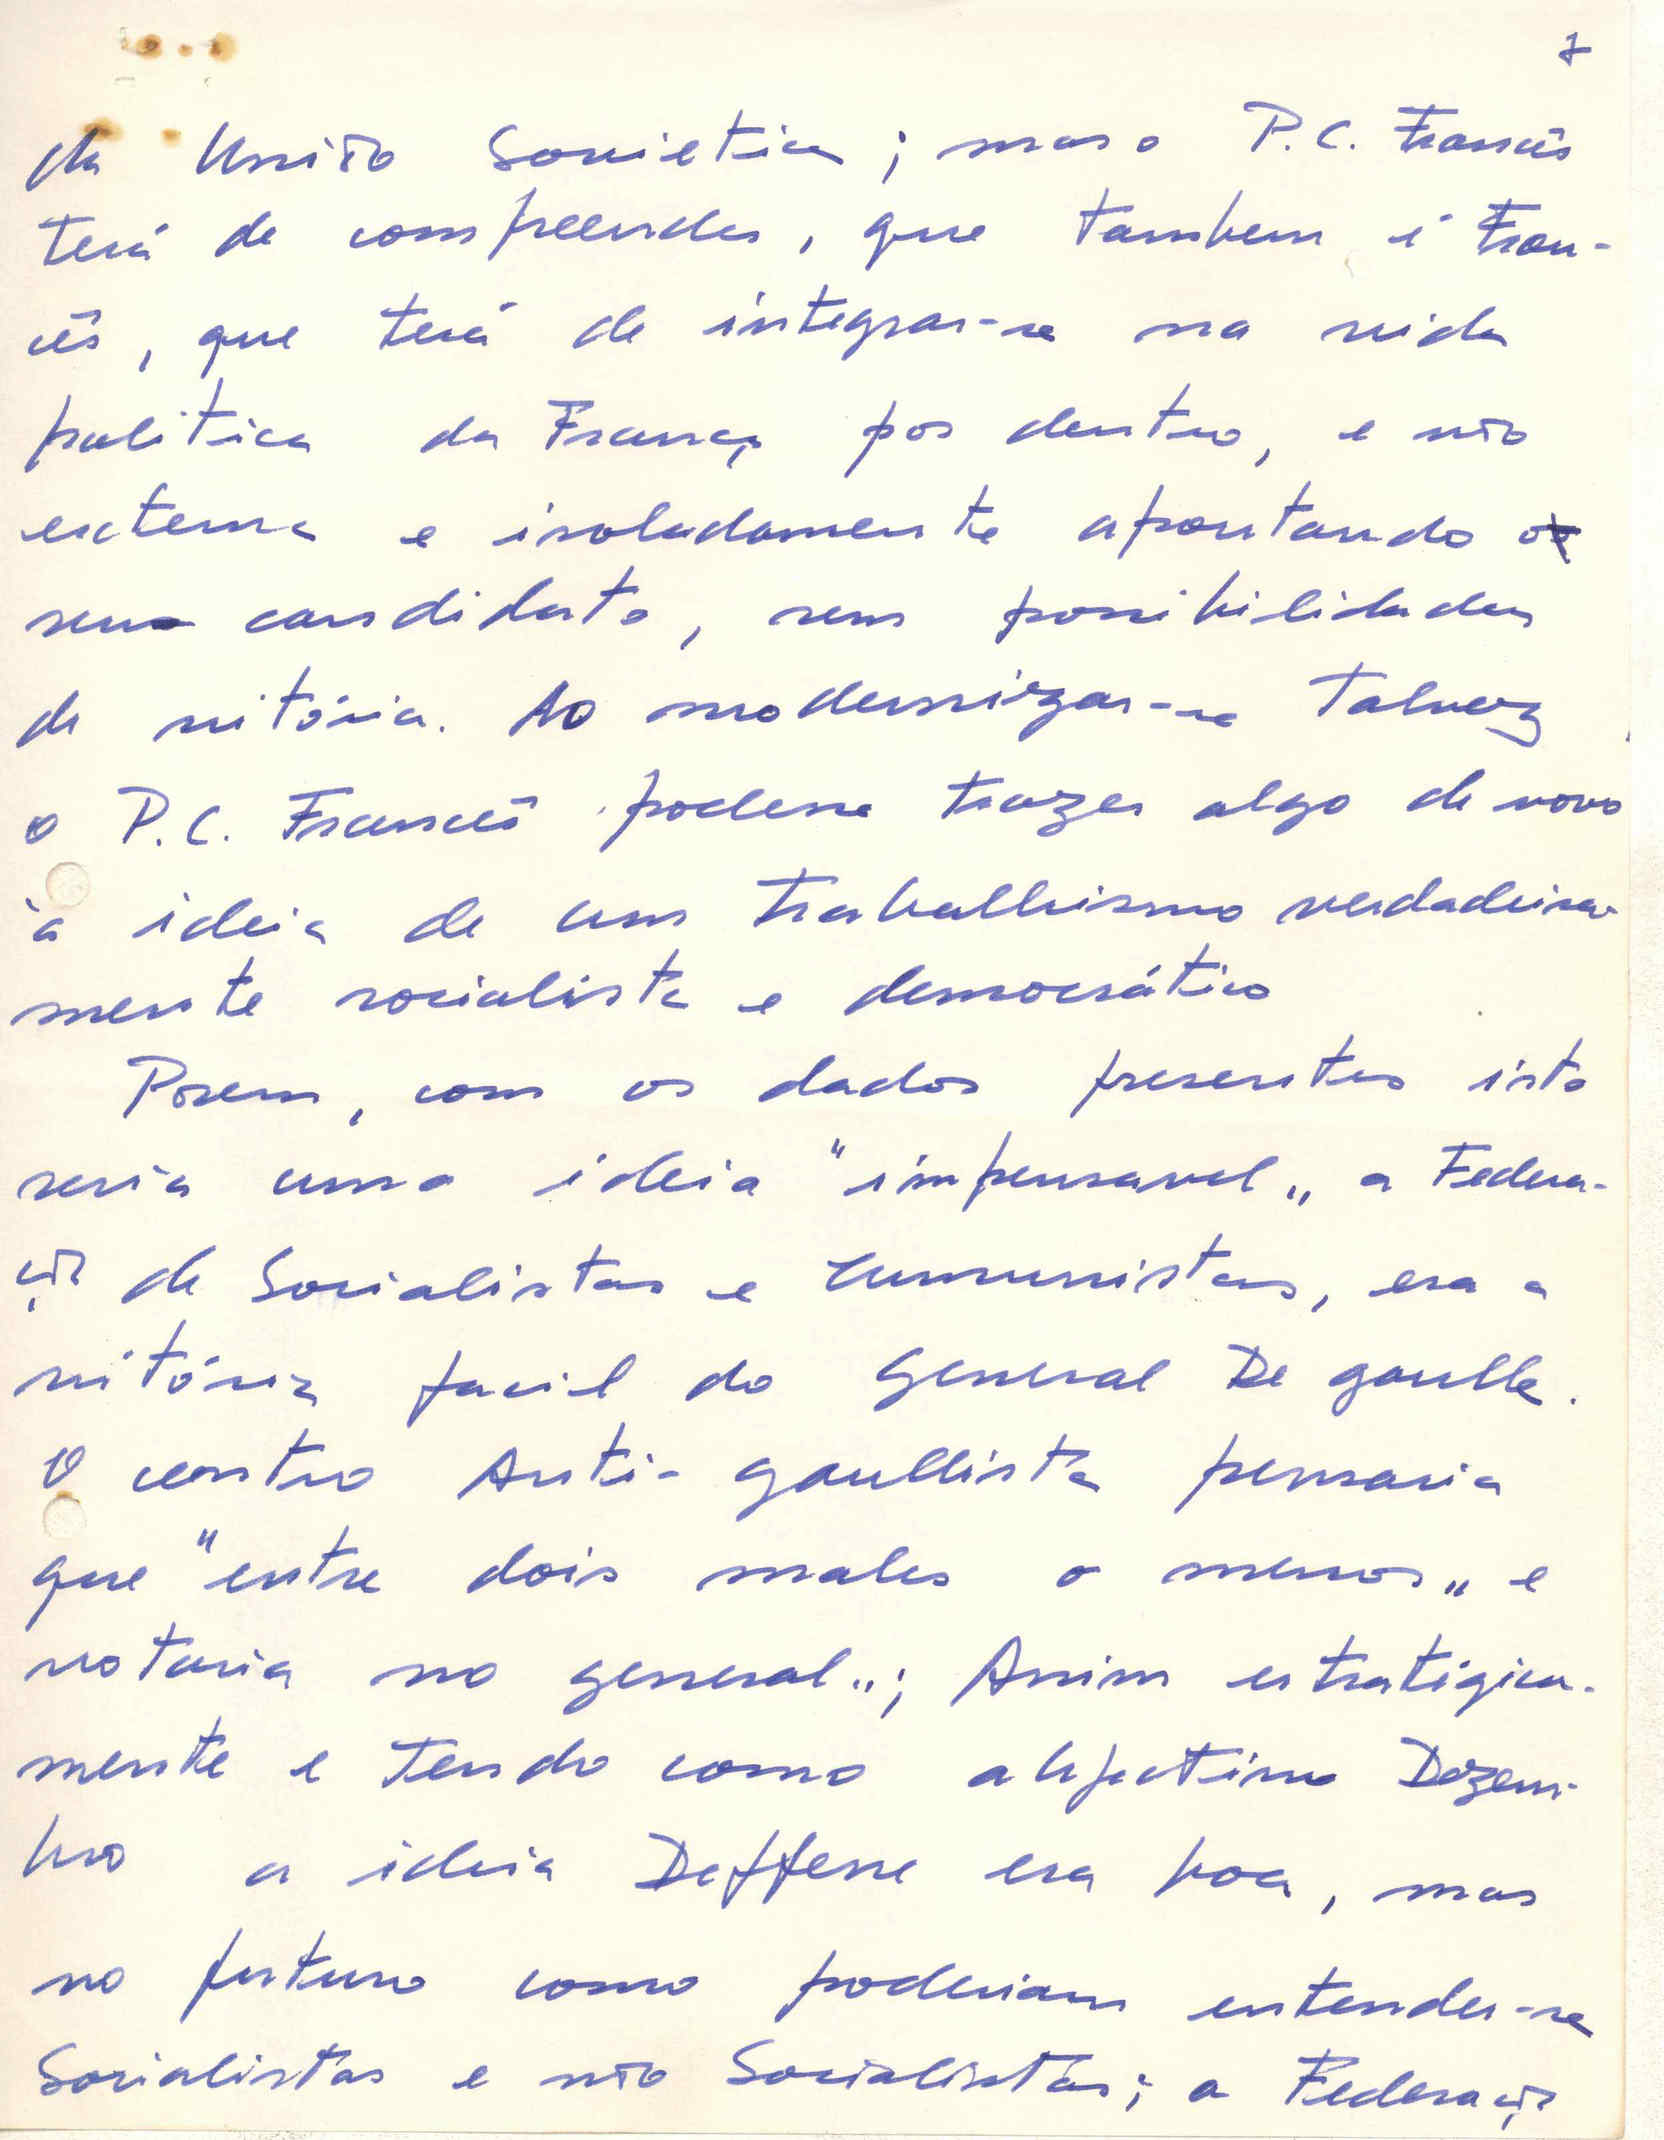 7
da União Sovietica; mas o P.C. Francês
terá de compreender, que tambem é Fran-
cês, que terá de integrar-se na vida
politica da França por dentro, e não
externa e isoladamente apontando os
seu candidato, sem possibilidades
de vitória. Ao modernizar-se Talvez
o P.C. Francês podesse trazer algo de novo
à ideia de um trabalhismo verdadeira-
mente socialista e democrático
Porem, com os dados presentes isto
seria uma ideia "impensavel„ a Federa-
ção de Socialistas e Cumunistas, era a
vitória facil do General De gaulle.
O centro Anti-gaullista pensaria
que "entre dois males o menor„ e
votaria no general„; Assim estratégica-
mente e Tendo como objectivo Dezem-
bro a ideia Defferre era boa, mas
no futuro como poderiam entender-se
Socialistas e não Socialistas; a Federação